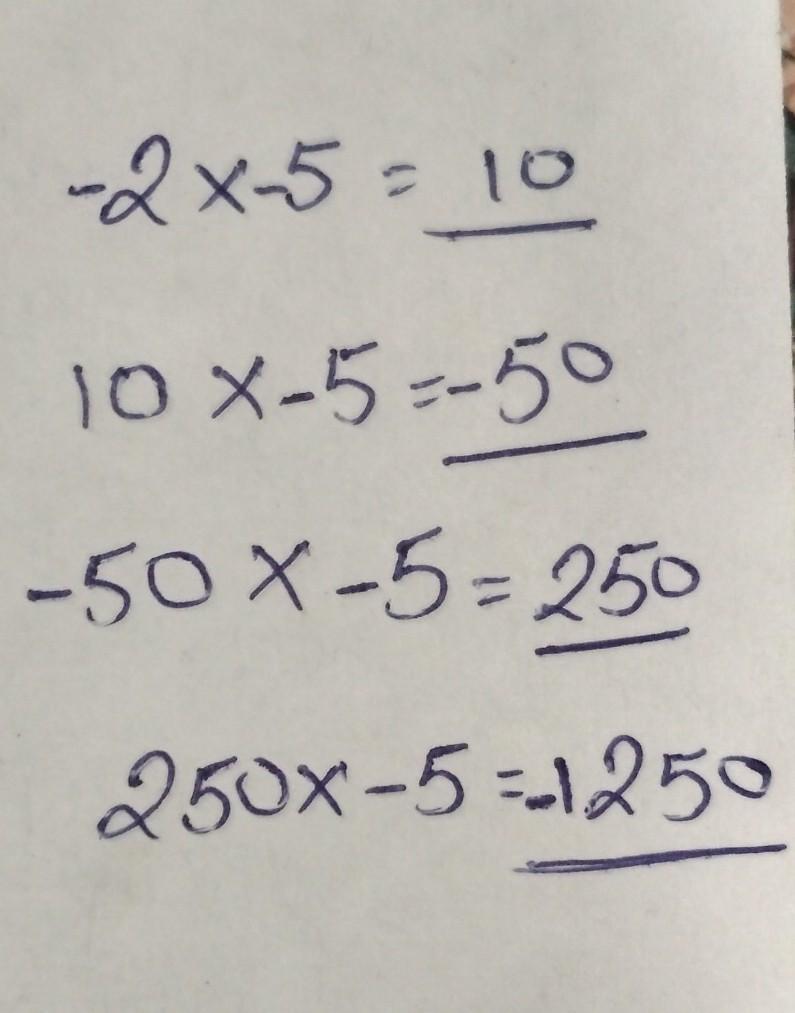 -2 x -5 = 10
10 x -5 = -50
-50 x -5 = 250
250 x -5 = -1250